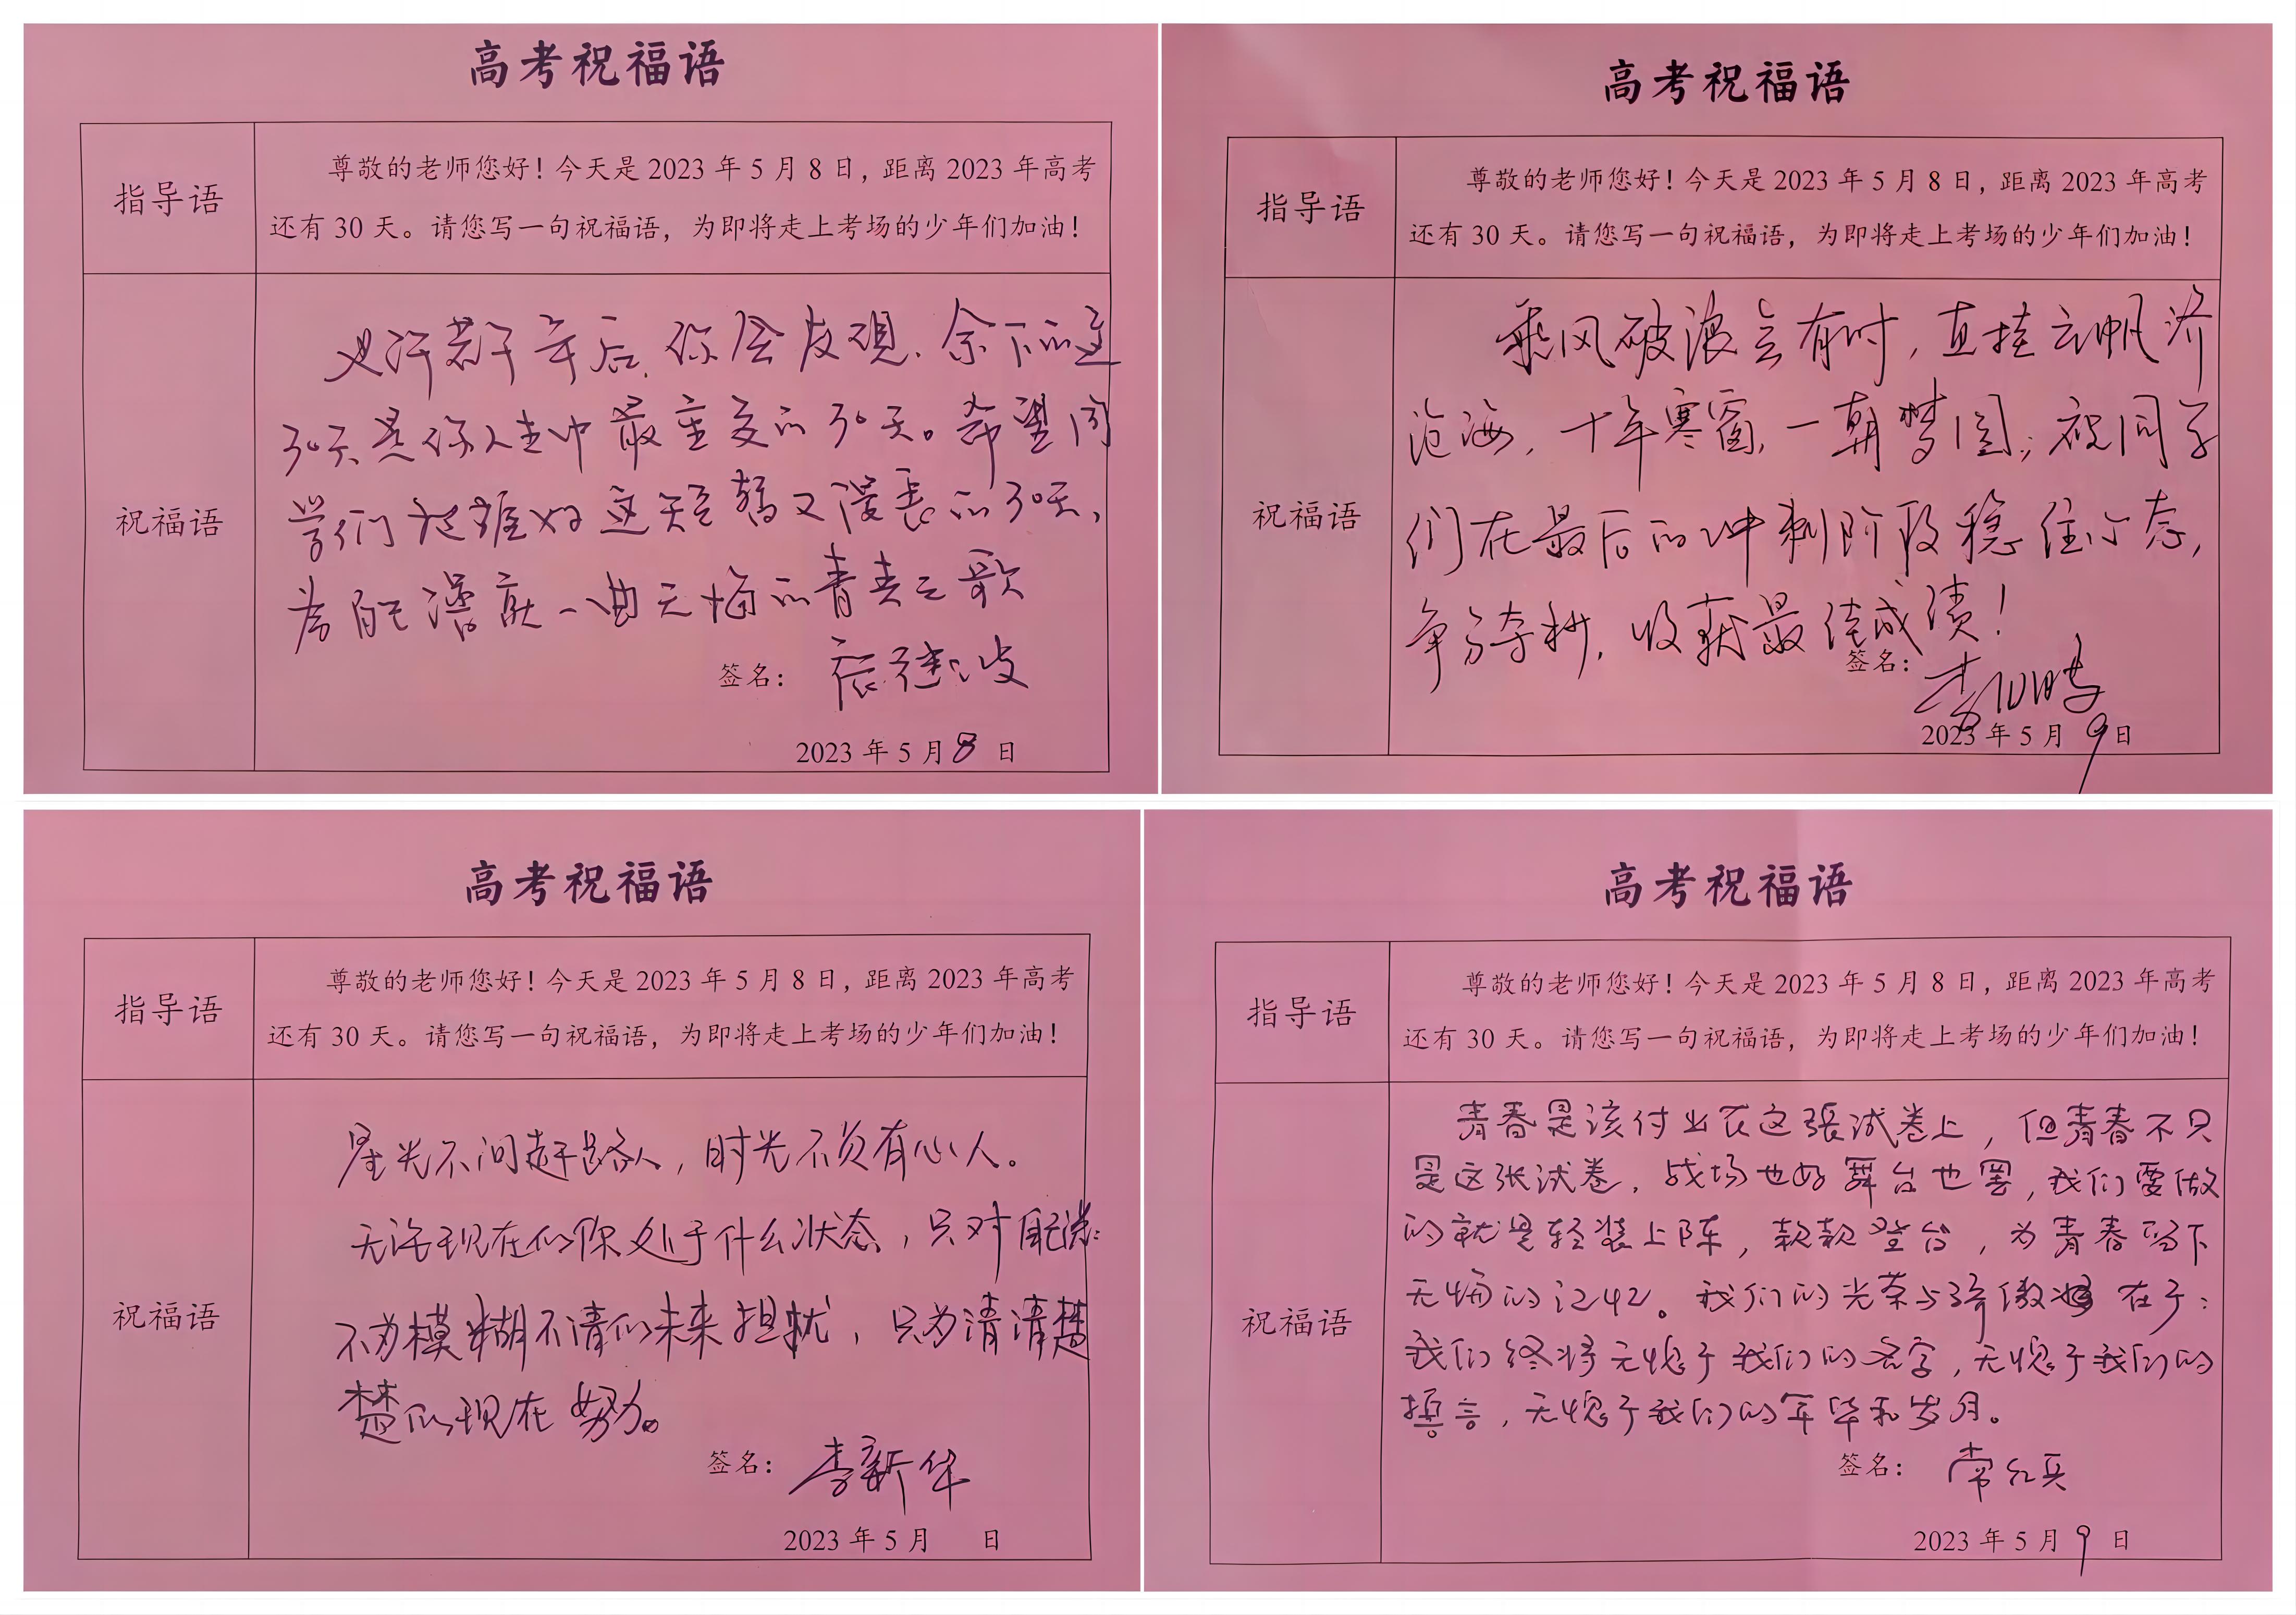 高考祝福语
指导语
尊敬的老师您好！今天是 2023 年 5 月 8 日，距离 2023 年高考
还有 30 天。请您写一句祝福语，为即将走上考场的少年们加油！
祝福语
也许若干年后，你会发现，余下的这
30天是你人生中最重要的30天。希望同
学们把握好这短暂又漫长的30天，
为自己谱就一曲无悔的青春之歌
签名：
2023 年 5 月 8 日
高考祝福语
指导语
尊敬的老师您好！今天是 2023 年 5 月 8 日，距离 2023 年高考
还有 30 天。请您写一句祝福语，为即将走上考场的少年们加油！
祝福语
乘风破浪会有时，直挂云帆济
沧海，十年寒窗，一朝梦圆；祝同学
们在最后的冲刺阶段稳住心态，
争分夺秒，收获最佳成绩！
签名：
2023 年 5 月 9 日
高考祝福语
指导语
尊敬的老师您好！今天是 2023 年 5 月 8 日，距离 2023 年高考
还有 30 天。请您写一句祝福语，为即将走上考场的少年们加油！
祝福语
星光不问赶路人，时光不负有心人。
无论现在的你处于什么状态，只对自己说：
不为模糊不清的未来担扰，只为清清楚
楚的现在努力。
签名：李新华
2023 年 5 月 日
高考祝福语
指导语
尊敬的老师您好！今天是 2023 年 5 月 8 日，距离 2023 年高考
还有 30 天。请您写一句祝福语，为即将走上考场的少年们加油！
祝福语
青春是该付出在这張试卷上，但青春不只
是这张试卷，战场也好舞台也罢，我们要做
的就是轻装上阵，款款登台，为青春写下
无悔的记忆。我们的光荣与骄傲 在于：
我们终将无愧于我们的名字，无愧于我们的
誓言，无愧于我们的年华和岁月。
签名：常红兵
2023 年 5 月 9 日